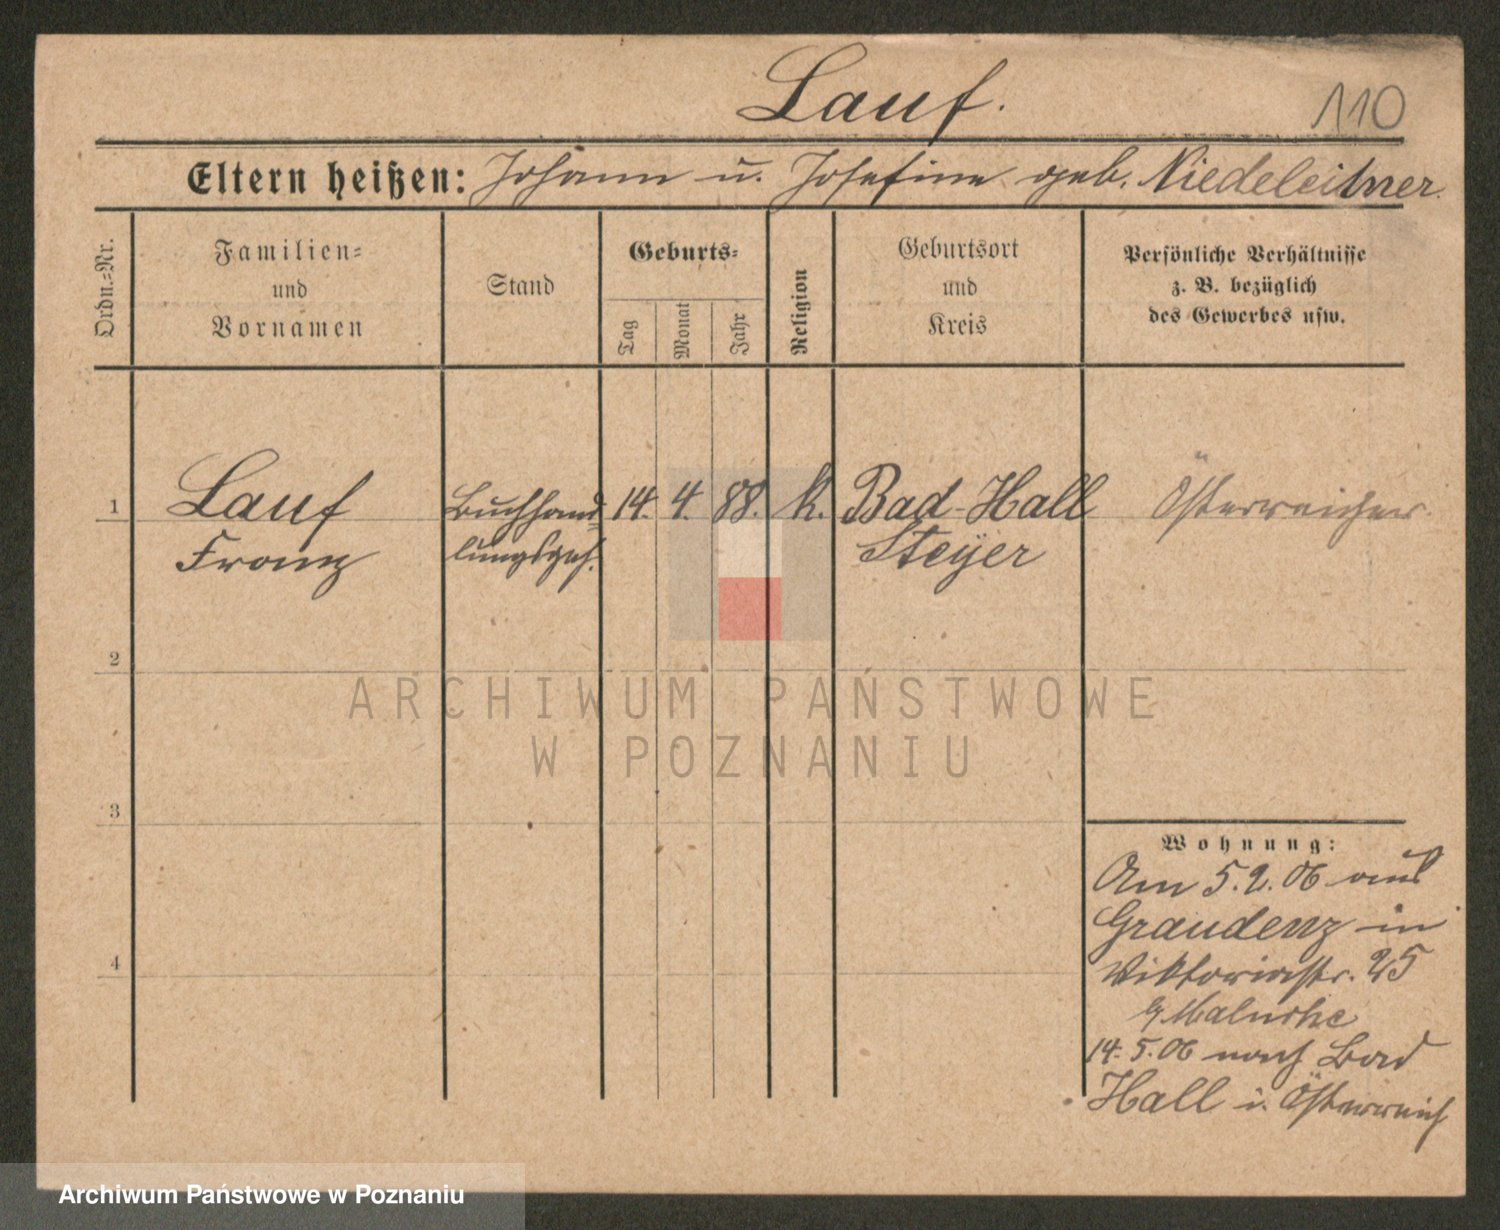 Lauf.
110
Eltern heißen: Johann u. Josefine geb. Niedeleitner.
Ordn.=Nr.
Familien=
und
Vornamen
Stand
Geburts=
Tag
Monat
Jahr
Religion
Geburtsort
und
Kreis
Persönliche Verhältnisse
z. B. bezüglich
des Gewerbes usw.
1
Lauf
Franz
Buchhand=
lungsgeh.
14. 4. 88.
k.
Bad-Hall
Steÿer
Österreicher.
2
ARCHIWUM PAŃSTWOWE
W POZNANIU
3
4
Wohnung:
Am 5.2.06 aus
Graudenz in
Viktoriastr. 25
14.5.06 nach Bad
Hall i. Österreich
Archiwum Państwowe w Poznaniu